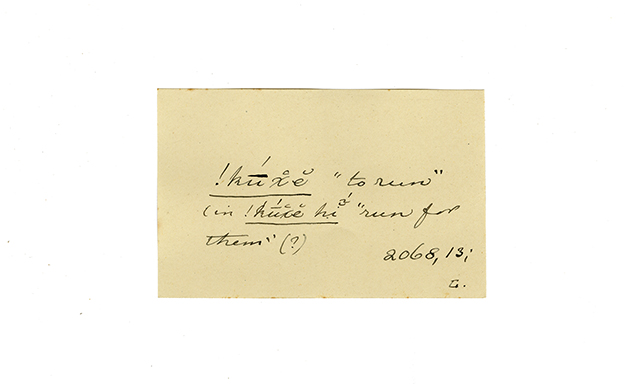 !kū́x̊ĕ "to run"
(in !kū́x̊ĕ hĭ́ "run for
them" (?)
2068, 13;
L.